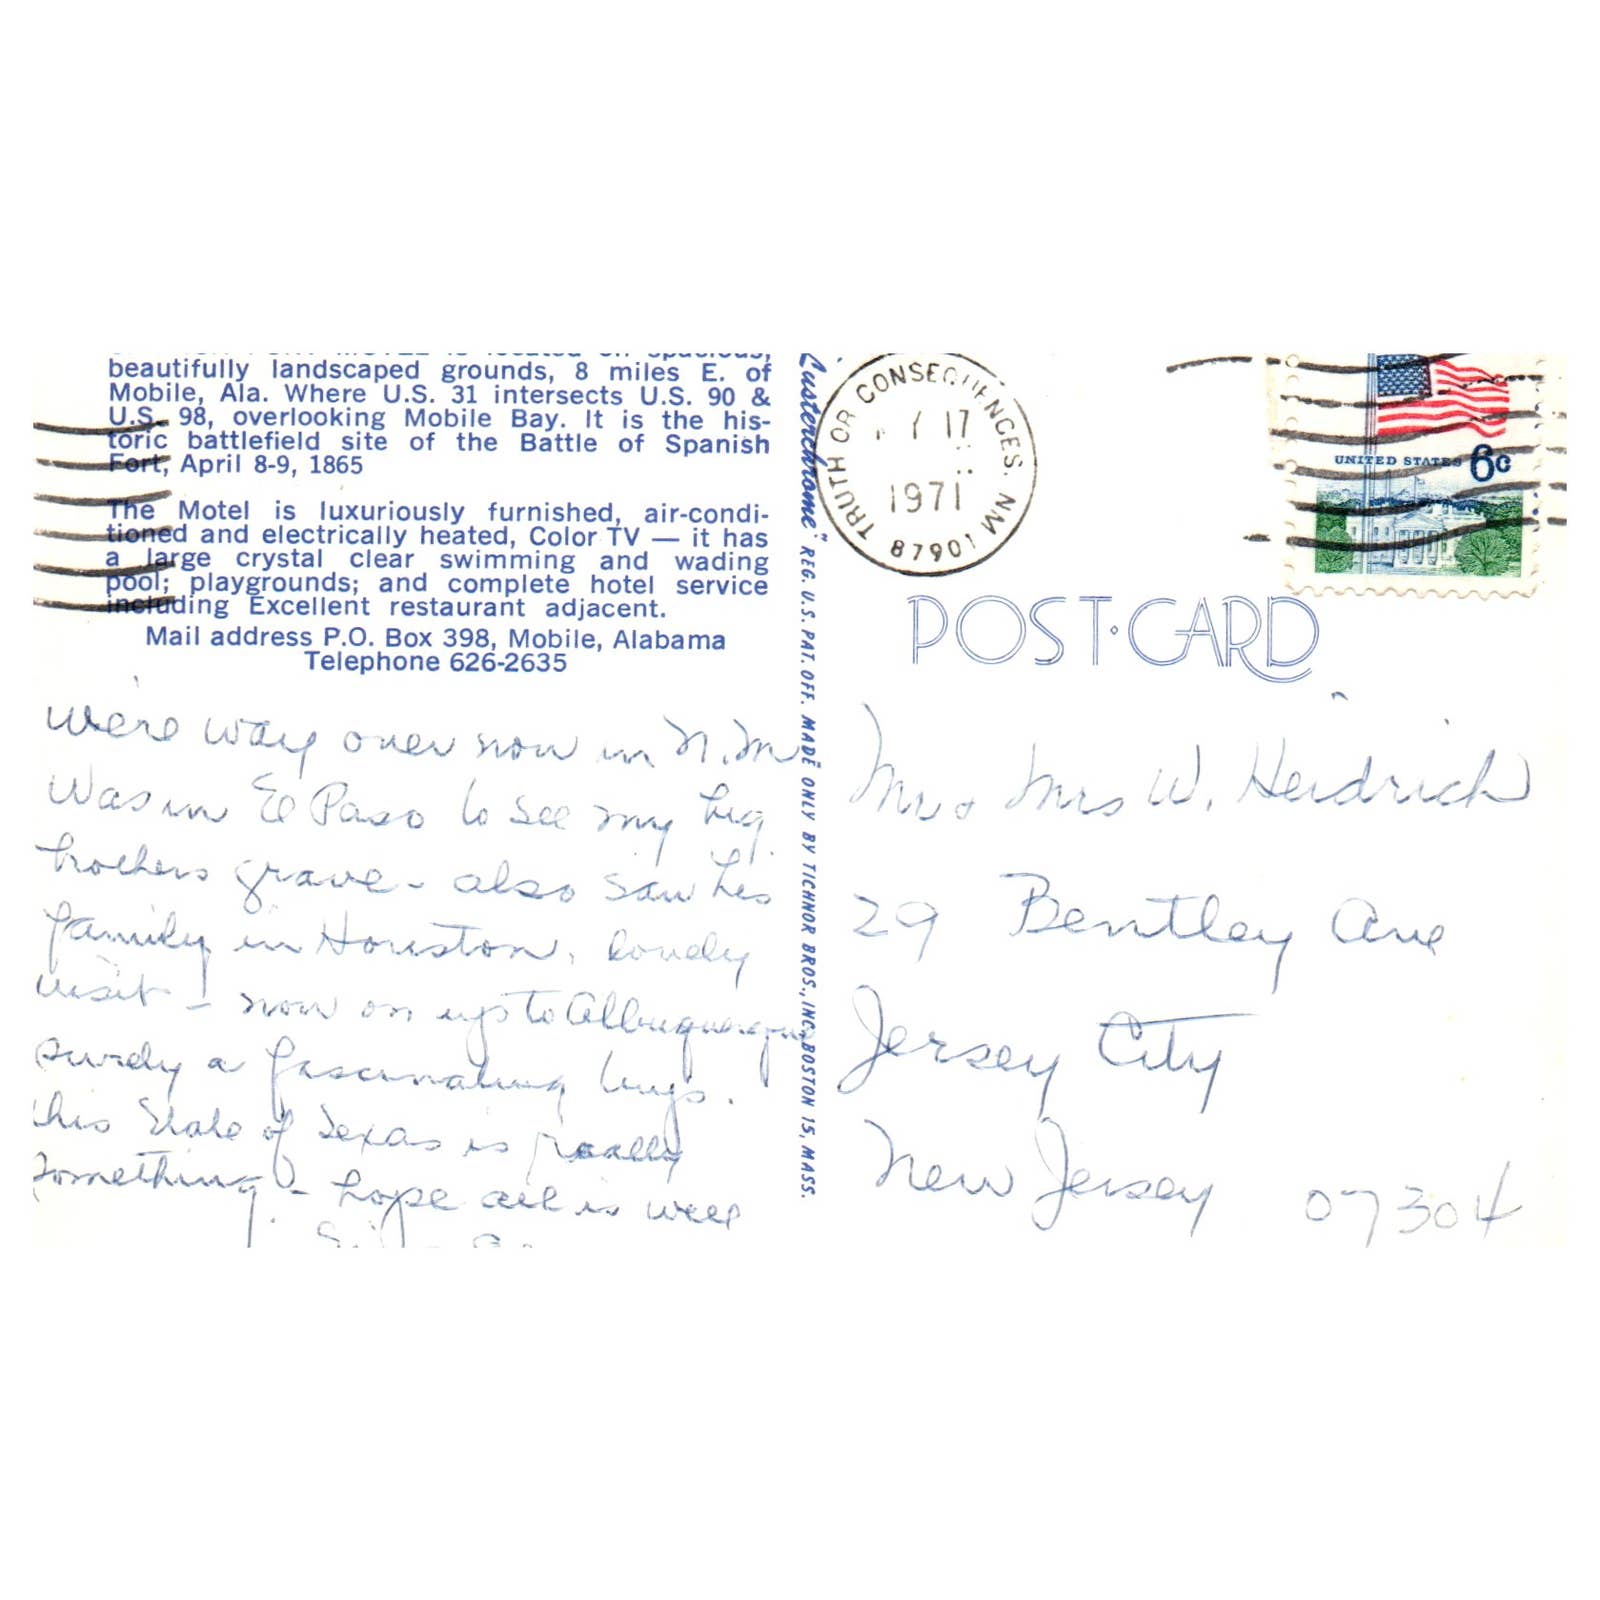 beautifully landscaped grounds, 8 miles E. of
Mobile, Ala. Where U.S. 31 intersects U.S. 90 &
U.S. 98, overlooking Mobile Bay. It is the his-
toric battlefield site of the Battle of Spanish
Fort, April 8-9, 1865
The Motel is luxuriously furnished, air-condi-
tioned and electrically heated, Color TV — it has
a large crystal clear swimming and wading
pool; playgrounds; and complete hotel service
including Excellent restaurant adjacent.
Mail address P.O. Box 398, Mobile, Alabama
Telephone 626-2635
We're way over now in N.M
Was in El Paso to see my big
brothers grave - also saw his
family in Houston, lovely
visit - now on up to Albuquerque
surely a fascinating
this State of Texas is really
something - hope all is well
"Lusterchrome" REG. U.S. PAT. OFF. MADE ONLY BY TICHNOR BROS., INC. BOSTON 15, MASS.
TRUTH OR CONSEQUENCES, NM
17
1971
87901
UNITED STATES 6c
POST·CARD
Mr & Mrs W. Heidrich
29 Bentley Ave
Jersey City
New Jersey 07304